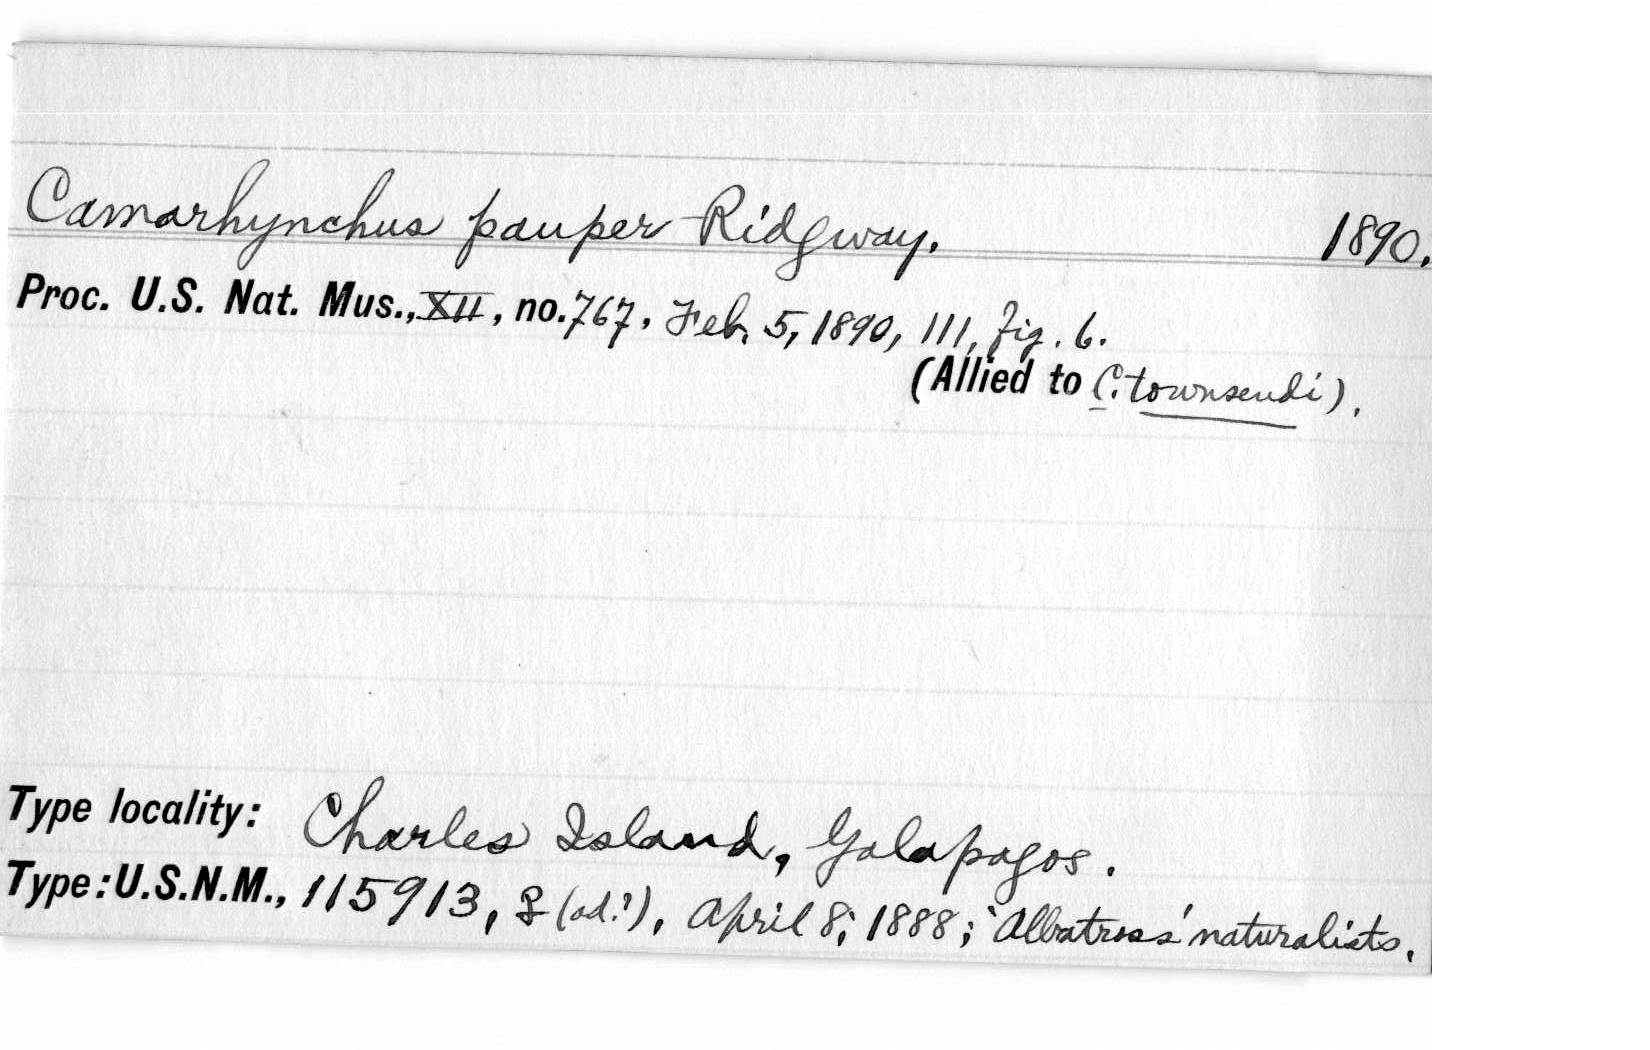 Camarhynchus pauper Ridgway. 1890.
Proc. U.S. Nat. Mus., XII, no. 767, Feb. 5, 1890, 111, fig. 6.
(Allied to C. townsendi).
Type locality: Charles Island, Galapagos.
Type: U.S.N.M., 115913, ♀ (ad.?), April 8, 1888; 'Albatross' naturalists.